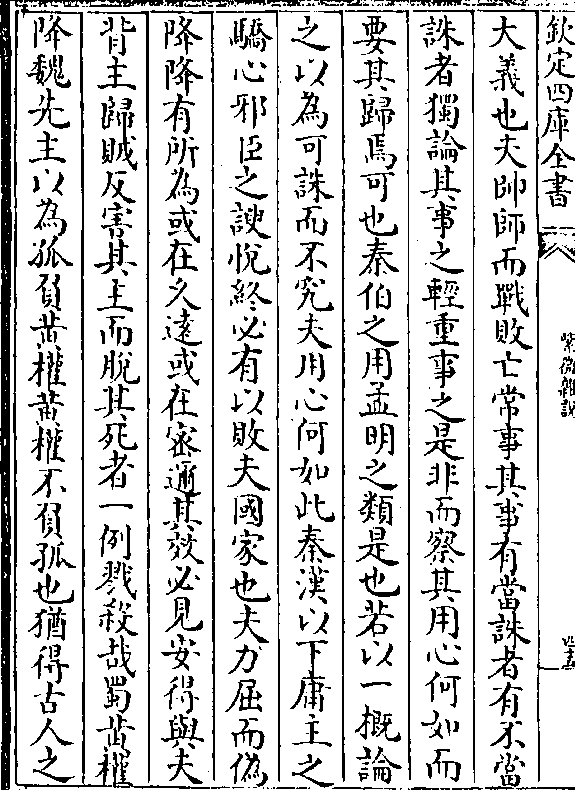 欽定四庫全書
紫微雜說
四十五
大義也夫帥師而戰敗亡常事其事有當誅者有不當
誅者獨論其事之輕重事之是非而察其用心何如而
要其歸焉可也秦伯之用孟明之類是也若以一概論
之以為可誅而不究夫用心何如此秦漢以下庸主之
驕心邪臣之諛悅終必有以敗夫國家也夫力屈而偽
降降有所為或在久遠或在密邇其效必見安得與夫
背主歸賊反害其主而脫其死者一例戮殺哉蜀黃權
降魏先主以為孤負黃權黃權不負孤也猶得古人之